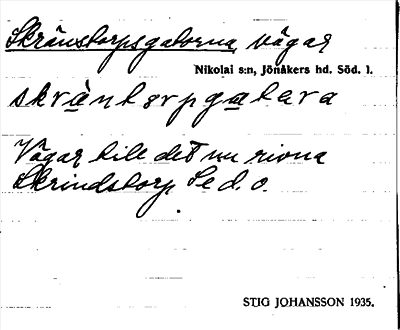 Skränstorpsgatorna, vägar
Nikolai s:n, Jönåkers hd. Söd. l.
skräntorpgatara
Vägar till det nu rivna
Skrindstorp. Se d. o.
STIG JOHANSSON 1935.